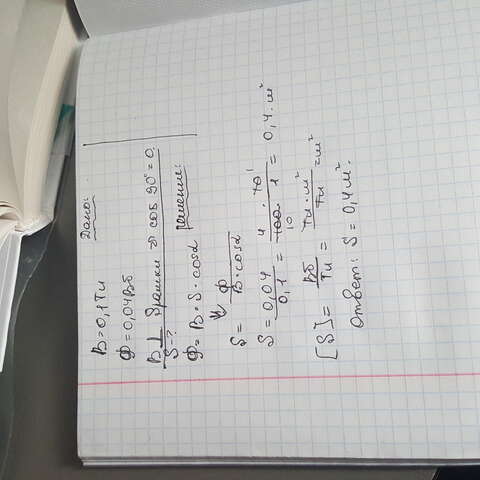 Дано:
B=0,1Тл
Ф=0,04Вб
B ⊥ Sрамки ⇒ cos 90°=0
S-?
Решение:
Ф=B·S·cosα
⇓
S= Ф / B·cosα
S= 0,04 / 0,1 = 4 / 100 · 10 / 1 = 0,4 м²
10 1
[S]= Вб / Тл = Тл·м² / Тл =м²
Ответ: S=0,4м².